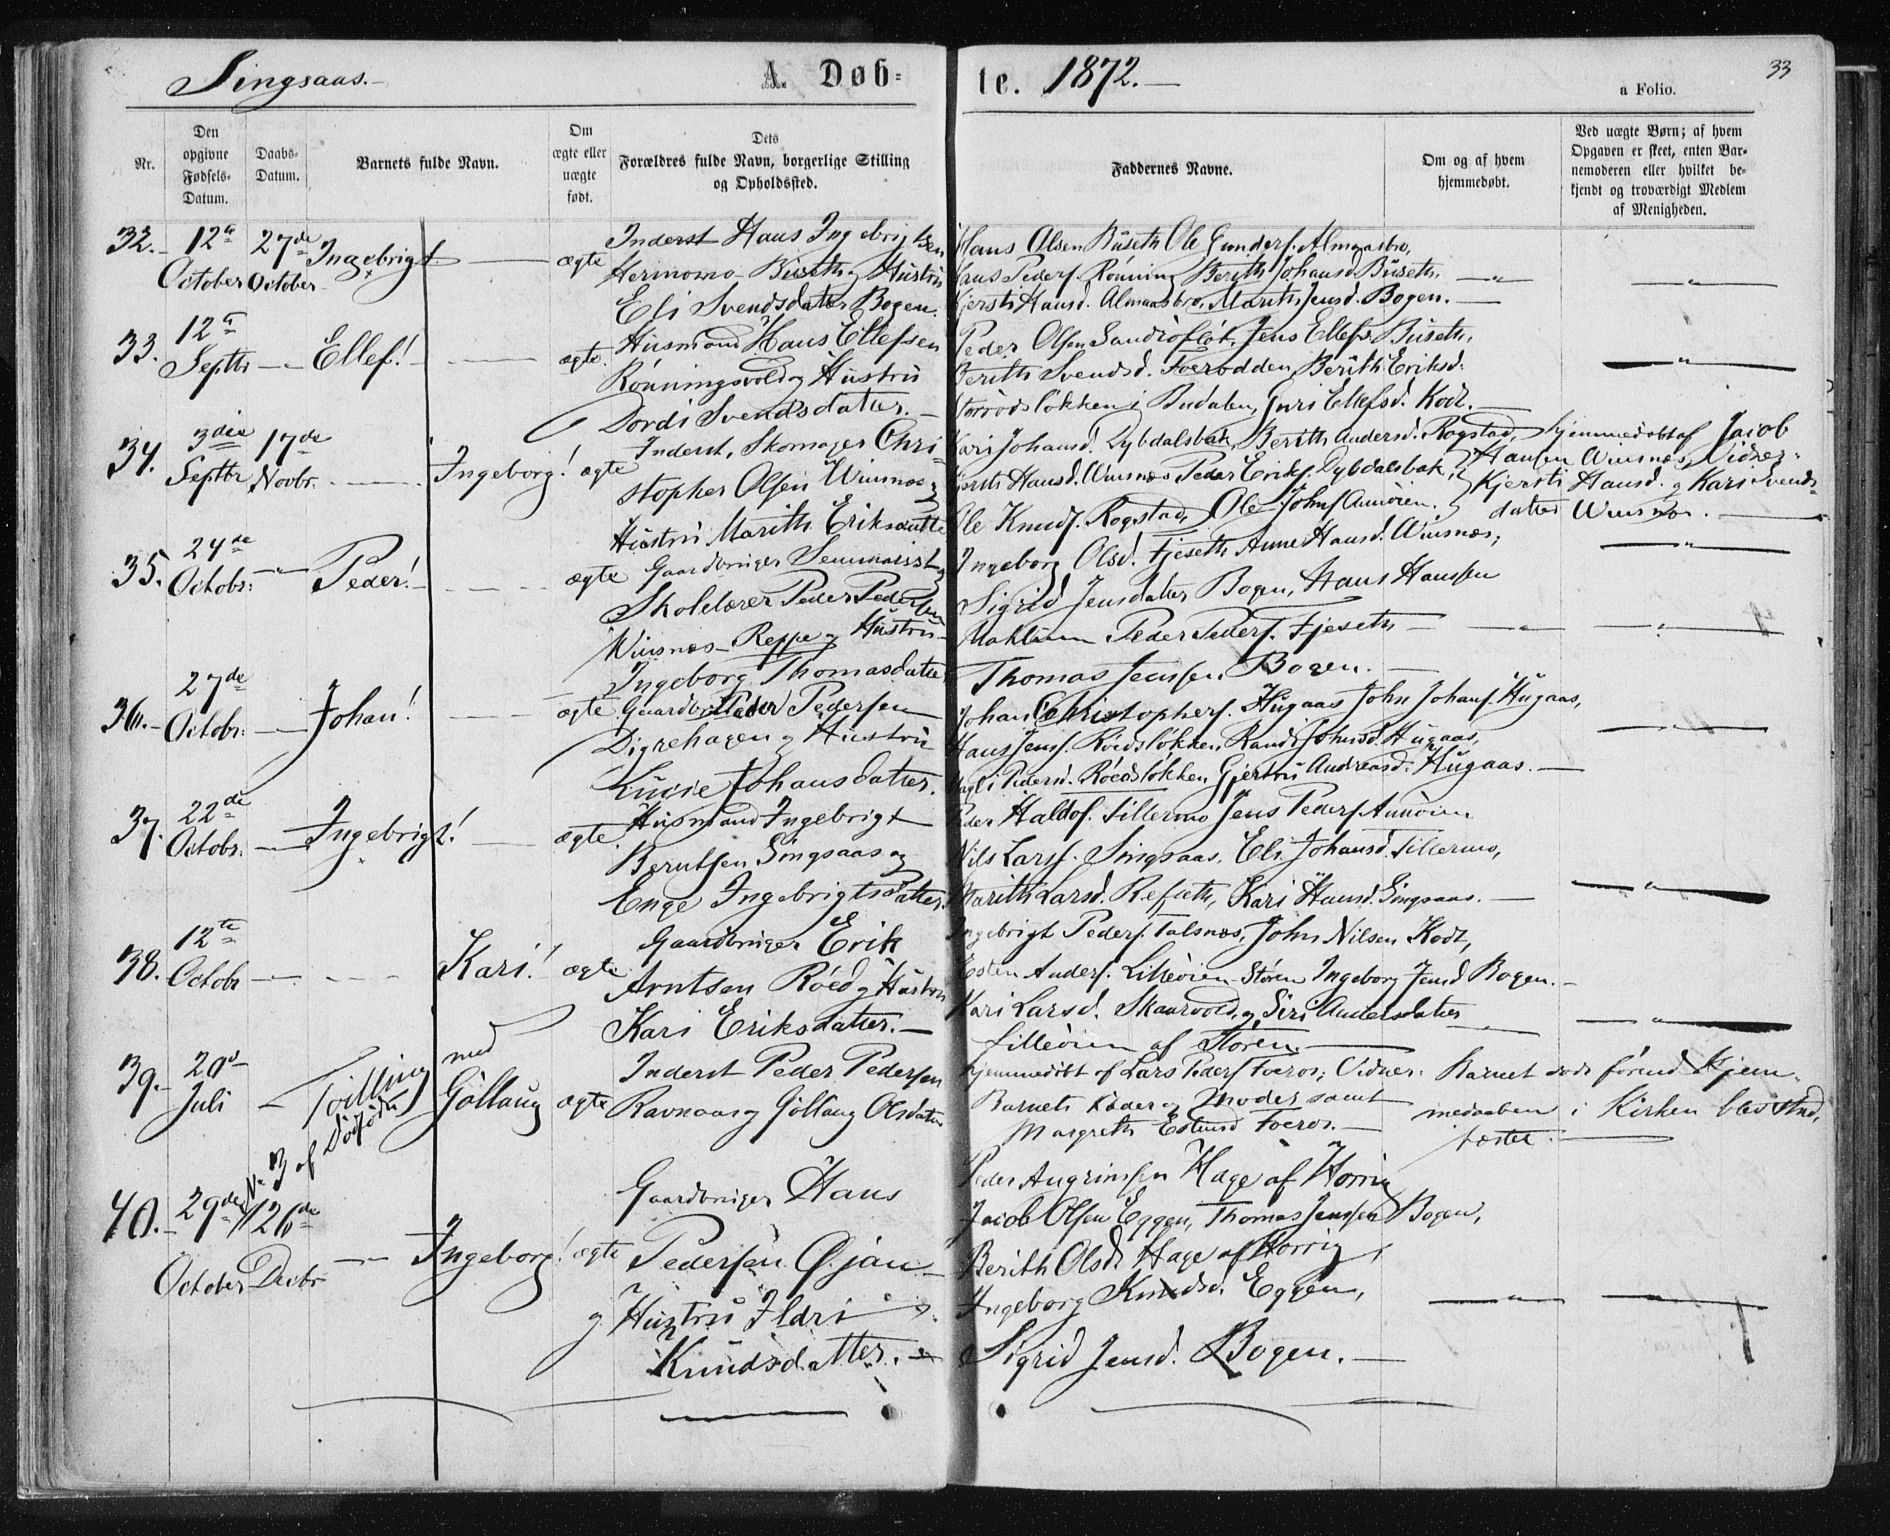 Singsaas.
A. Døb=
te. 1872.
33
a Folio.
Nr.
Den opgivne Fødsels-Datum.
Daabs-Datum.
Barnets fulde Navn.
Om ægte eller uægte født.
Dets Forældres fulde Navn, borgerlige Stilling og Opholdssted.
Faddernes Navne.
Om og af hvem hjemmedøbt.
Ved uægte Børn; af hvem Opgaven er skeet, enten Barnemoderen eller hvilket bekjendt og troværdigt Medlem af Menigheden.
32. 12te October 27de October Ingebrigt ægte
Inderst Hans Ingebrigtsen
Hermomo Buseth og Hustru
Eli Svendsdatter Bogen.
Hans Olsen Buseth Ole Gunders. Almaasbro,
Hans Peders. Rønning Berith Johansd. Buseth,
Kjersti Hansd. Almaasbro, Marith Jensd. Bogen.
33. 12te Septbr Ellef! ægte
Husmand Hans Ellefsen
Rønningsvold og Hustru
Dordi Svendsdatter.
Peder Olsen Jens Ellefs. Buseth,
Berith Svendsd. Foerodden, Berith Eriksd.
i Budalen, Guri Ellefsd. Kodt.
34. 3die Septbr 17de Novbr. Ingeborg! ægte
Inderst, Skomager Chri-
stopher Olsen Winsnæs og
Hustru Marith Eriksdatter
Kari Johansd. Dybdalsbak, Berith Andersd. Rogstad,
Kjersti Hansd. Winsnæs Peder Eriks. Dybdalsbak,
Ole Knuds. Rogstad, Ole Johns. Aunøien.
Ingeborg Olsd. Fjeseth, Anne Hansd. Winsnæs,
hjemmedøbt af Jacob
Hansen Winsnæs, Vidner:
Kjersti Hansd. og Kari Svends-
datter Winsnæs.
35. 24de Octobr: Peder! ægte
Gaardbruger Seminarist og
Skolelærer Peder Pedersen
Winsnæs Reppe og Hustru
Ingeborg Thomasdatter
Sigrid Jensdatter Bogen, Hans Hansen
Peder Peders. Fjeseth
Thomas Jensen Bogen.
36. 27de Octobr: Johan! ægte
Gaardbr. Peder Pedersen
Digrehagen og Hustru
Lucie Johansdatter.
Johan Christophers. Hugaas John Johans. Hugaas,
Hans Jens. Røedsløkken, Randi Johnsd. Hugaas,
Pedersd. Røedsløkken Gjertru Andreasd. Hugaas.
37. 22de Octobr. Ingebrigt! ægte
Husmand Ingebrigt
Berntsen Singsaas og
Enge Ingebrigtsdatter.
Peder Haldos. Tillermo Jens Peders. Aunøien
Nils Lars. Singsaas, Eli Johansd. Tillermo,
Marith Larsd. Refseth, Kari Hansd. Singsaas.
38. 12te Octobr Kari! ægte
Gaardbruger Erik
Arntsen Røed og Hustru
Kari Eriksdatter.
Ingebrigt Peders. Talsnæs, John Nilsen Kodt,
Esten Anders. Lilleøien Støren Ingeborg Jensd Bogen.
Kari Larsd. Skaarvold, og Siri Andersdatter
Lilleøien af Støren.
39. 20de Juli Tvilling med Gøllaug ægte
No. 3 af Dødfødte
Inderst Peder Pedersen
Ravnaas og Gøllaug Olsdatter
hjemmedøbt af Lars Peders. Foeros; Vidner:
Barnets Fader og Moder samt
Margreth Estensd Foeros.
Barnet døde førend Hjem-
medaaben i Kirken blev stad,
fæstet.
40. 29de October 26de Decbr Ingeborg! ægte
Gaardbruger Hans
Pedersen Øjan
og Hustru Ildri
Knudsdatter.
Peder Angrimsen Hage af Horrig
Jacob Olsen Eggen, Thomas Jensen Bogen,
Berith Olsd. Hage af Horrig,
Ingeborg Knudsd. Eggen,
Sigrid Jensd. Bogen.